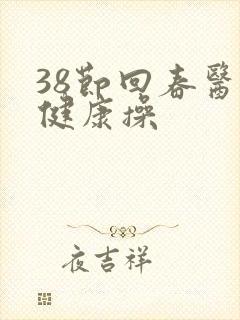 38節回春醫
健康操
夜吉祥